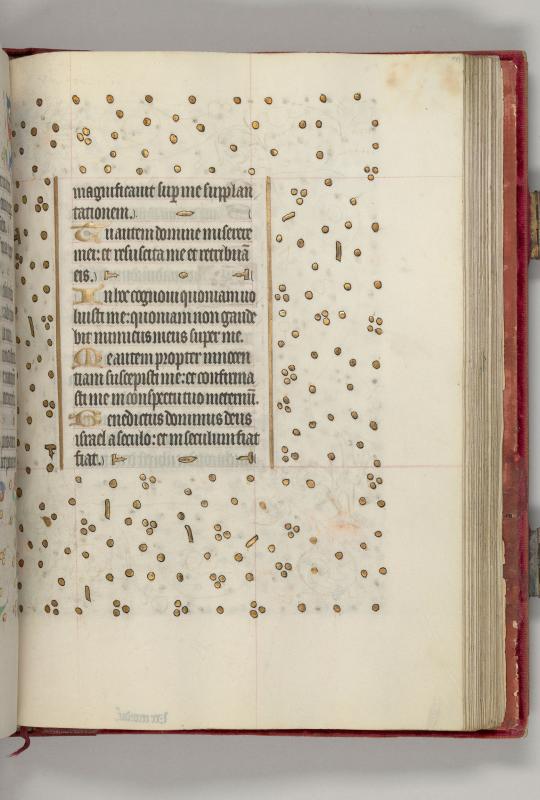 magnificauit sup me supplan
tationem.
Tu autem domine miserere
mei: et resuscita me et retribuā
eis.
In hoc cognoui quoniam uo
luisti me: quoniam non gaude
bit inimicus meus super me.
Me autem propter innocen
tiam suscepisti me: et confirma
sti me in conspectu tuo ineternū.
Benedictus dominus deus
israel a seculo: et in seculum fiat
fiat.